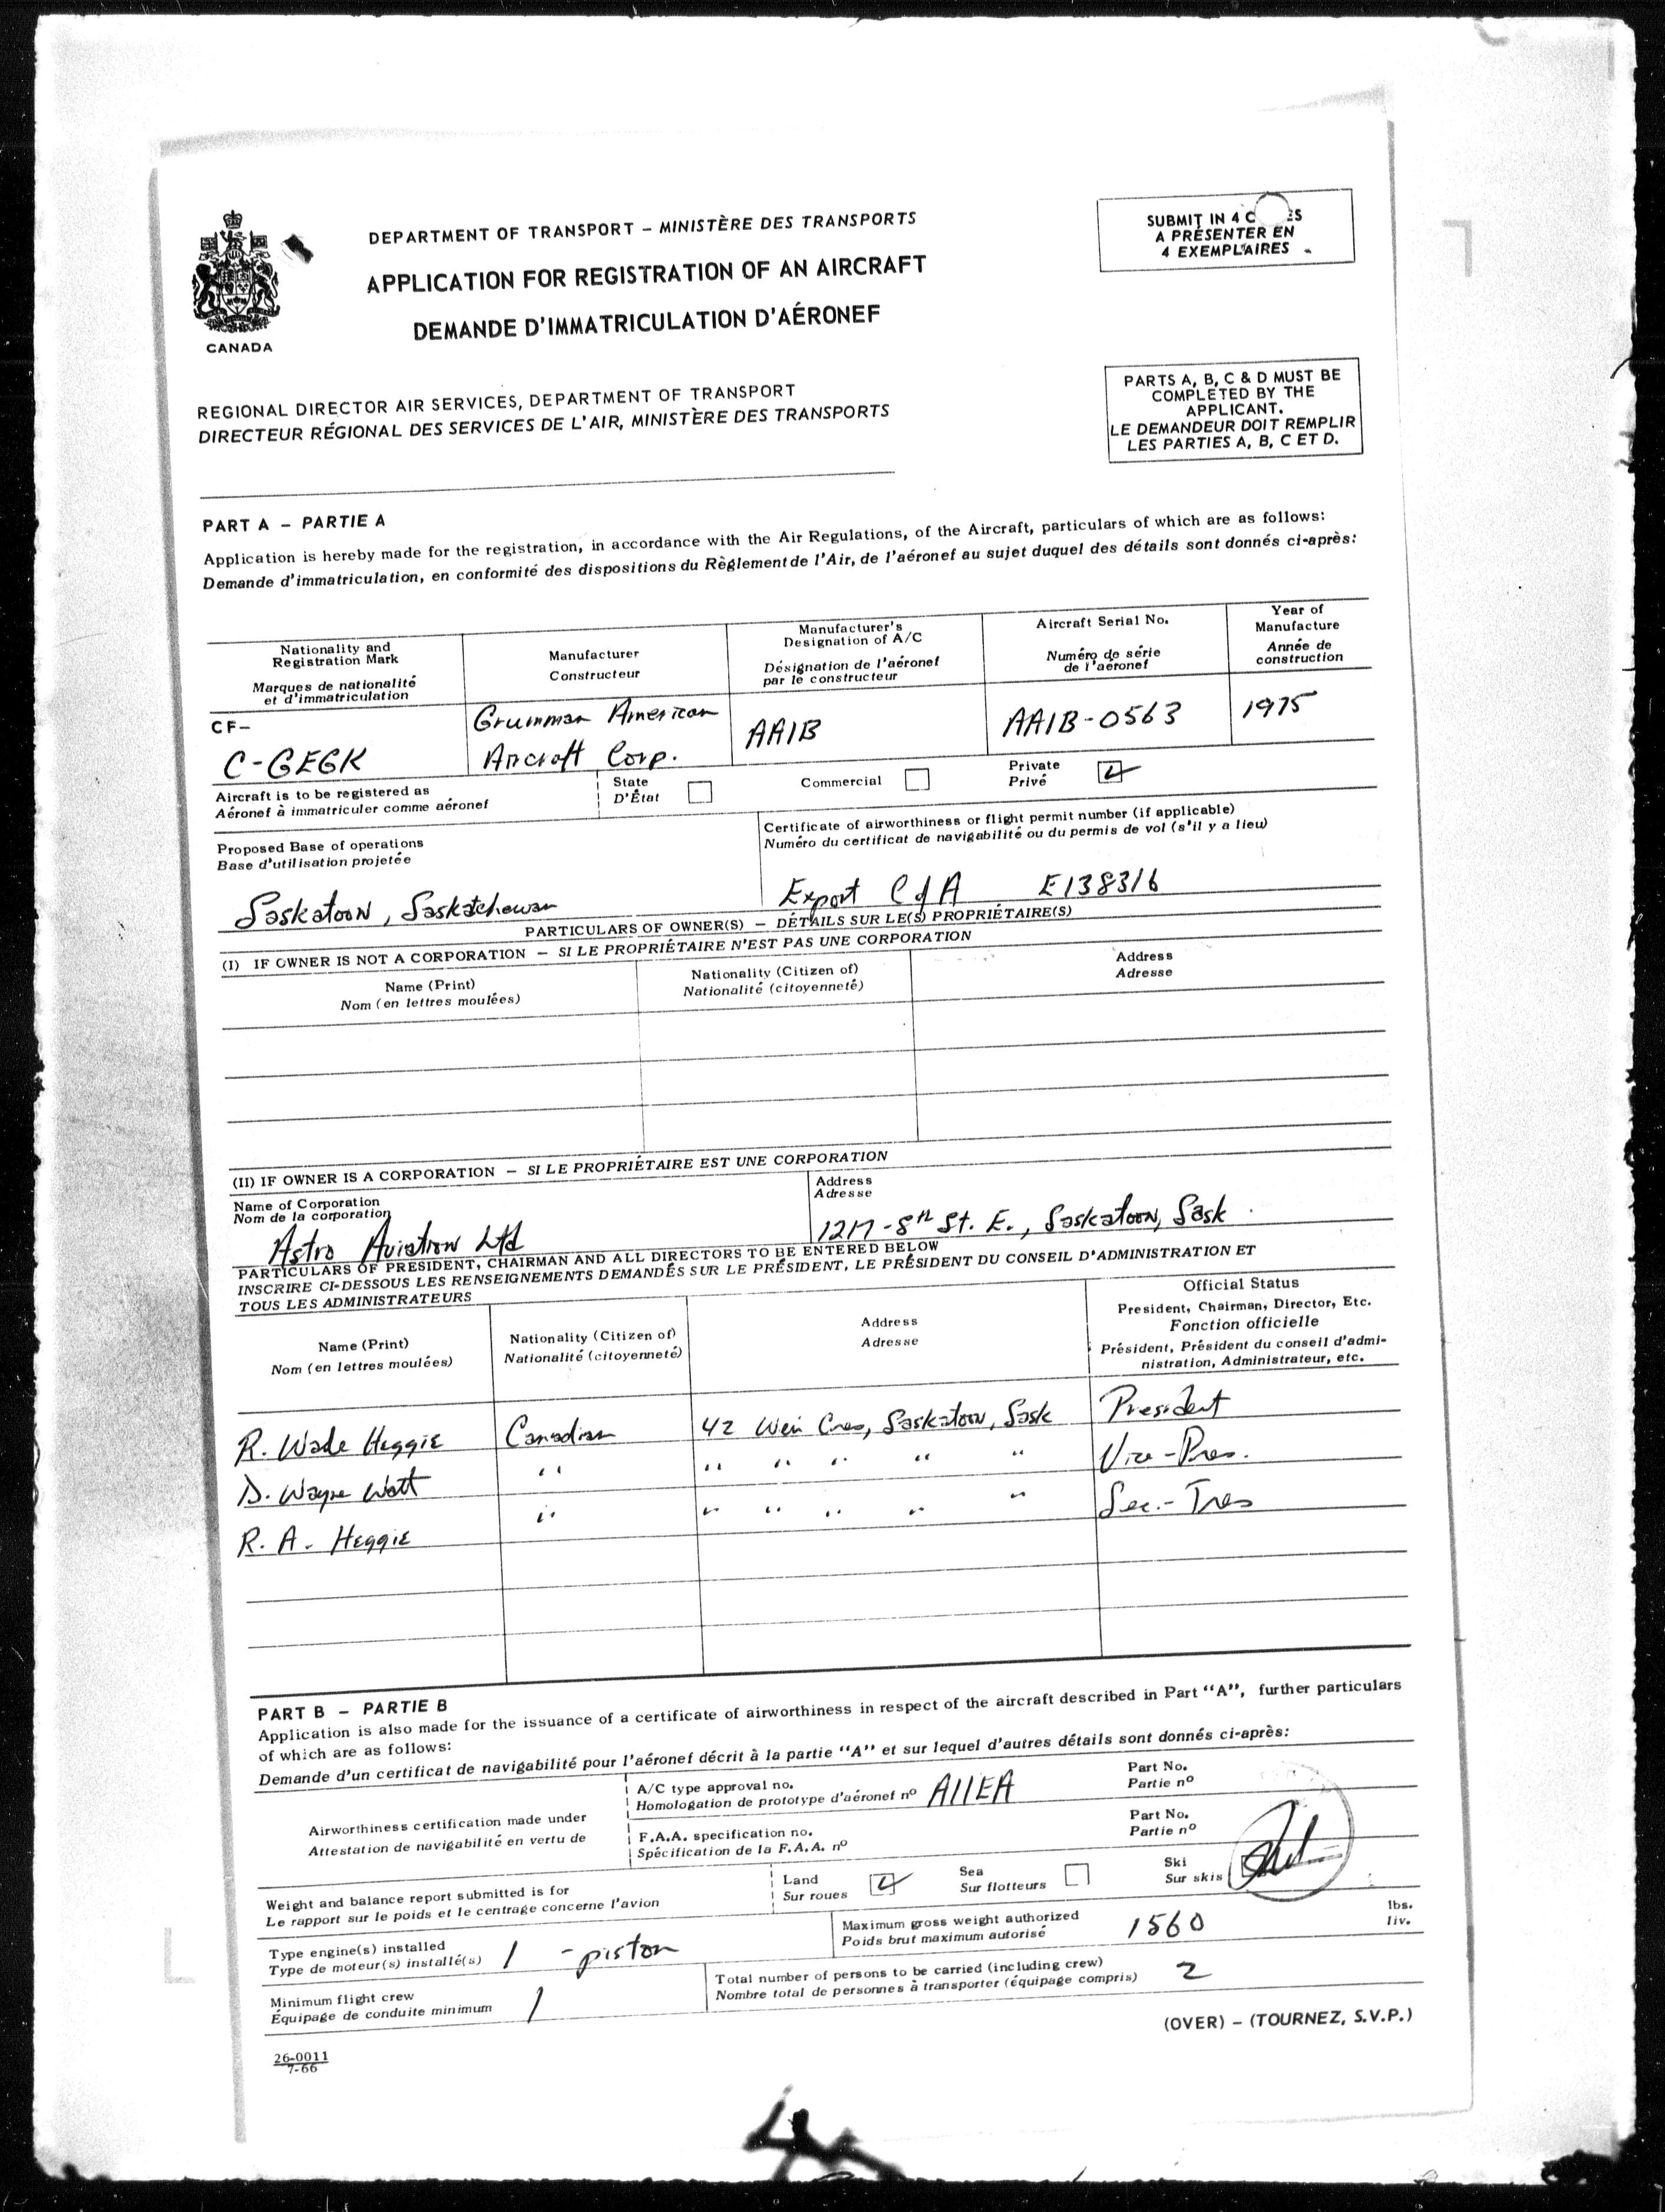 DEPARTMENT OF TRANSPORT – MINISTÈRE DES TRANSPORTS
APPLICATION FOR REGISTRATION OF AN AIRCRAFT
DEMANDE D'IMMATRICULATION D'AÉRONEF
CANADA
SUBMIT IN 4 C ES
A PRÉSENTER EN
4 EXEMPLAIRES
REGIONAL DIRECTOR AIR SERVICES, DEPARTMENT OF TRANSPORT
DIRECTEUR RÉGIONAL DES SERVICES DE L'AIR, MINISTÈRE DES TRANSPORTS
PARTS A, B, C & D MUST BE
COMPLETED BY THE
APPLICANT.
LE DEMANDEUR DOIT REMPLIR
LES PARTIES A, B, C ET D.
PART A – PARTIE A
Application is hereby made for the registration, in accordance with the Air Regulations, of the Aircraft, particulars of which are as follows:
Demande d'immatriculation, en conformité des dispositions du Règlement de l'Air, de l'aéronef au sujet duquel des détails sont donnés ci-après:
Nationality and
Registration Mark
Marques de nationalité
et d'immatriculation
Manufacturer
Constructeur
Manufacturer's
Designation of A/C
Désignation de l'aéronef
par le constructeur
Aircraft Serial No.
Numéro de série
de l'aéronef
Year of
Manufacture
Année de
construction
CF–
C-GEGK
Grumman American
Aircraft Corp.
AA1B
AA1B-0563
1975
Aircraft is to be registered as
Aéronef à immatriculer comme aéronef
State
D'État
Commercial
Private
Privé
Proposed Base of operations
Base d'utilisation projetée
Saskatoon, Saskatchewan
Certificate of airworthiness or flight permit number (if applicable)
Numéro du certificat de navigabilité ou du permis de vol (s'il y a lieu)
Export C of A E138316
PARTICULARS OF OWNER(S) – DÉTAILS SUR LE(S) PROPRIÉTAIRE(S)
(I) IF OWNER IS NOT A CORPORATION – SI LE PROPRIÉTAIRE N'EST PAS UNE CORPORATION
Name (Print)
Nom (en lettres moulées)
Nationality (Citizen of)
Nationalité (citoyenneté)
Address
Adresse
(II) IF OWNER IS A CORPORATION – SI LE PROPRIÉTAIRE EST UNE CORPORATION
Name of Corporation
Nom de la corporation
Astro Aviation Ltd
Address
Adresse
1217-8th St. E., Saskatoon, Sask.
PARTICULARS OF PRESIDENT, CHAIRMAN AND ALL DIRECTORS TO BE ENTERED BELOW
INSCRIRE CI-DESSOUS LES RENSEIGNEMENTS DEMANDÉS SUR LE PRÉSIDENT, LE PRÉSIDENT DU CONSEIL D'ADMINISTRATION ET
TOUS LES ADMINISTRATEURS
Name (Print)
Nom (en lettres moulées)
Nationality (Citizen of)
Nationalité (citoyenneté)
Address
Adresse
Official Status
President, Chairman, Director, Etc.
Fonction officielle
Président, Président du conseil d'admi-
nistration, Administrateur, etc.
R. Wade Heggie Canadian 42 Weir Cres, Saskatoon, Sask President
D. Wayne Watt " " " " " " Vice-Pres.
R. A. Heggie " " " " " " Sec.-Tres
PART B – PARTIE B
Application is also made for the issuance of a certificate of airworthiness in respect of the aircraft described in Part "A", further particulars
of which are as follows:
Demande d'un certificat de navigabilité pour l'aéronef décrit à la partie "A" et sur lequel d'autres détails sont donnés ci-après:
Airworthiness certification made under
Attestation de navigabilité en vertu de
A/C type approval no.
Homologation de prototype d'aéronef nº A11EA
Part No.
Partie nº
F.A.A. specification no.
Spécification de la F.A.A. nº
Part No.
Partie nº
Weight and balance report submitted is for
Le rapport sur le poids et le centrage concerne l'avion
Land
Sur roues
Sea
Sur flotteurs
Ski
Sur skis
Type engine(s) installed
Type de moteur(s) installé(s) 1 - piston
Maximum gross weight authorized
Poids brut maximum autorisé 1560
lbs.
liv.
Minimum flight crew
Équipage de conduite minimum 1
Total number of persons to be carried (including crew)
Nombre total de personnes à transporter (équipage compris) 2
(OVER) – (TOURNEZ, S.V.P.)
26-0011
7-66